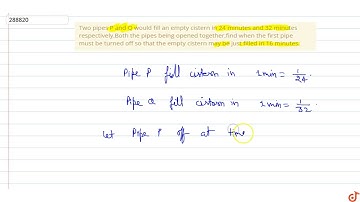 288820
Two pipes P and Q would fill an empty cistern in 24 minutes and 32 minutes
respectively.Both the pipes being opened together,find when the first pipe
must be turned off so that the empty cistern may be just filled in 16 minutes.
Pipe P fill cistern in 1 min = 1/24.
Pipe Q fill cistern in 1 min = 1/32.
let Pipe P off at time
doubtnut